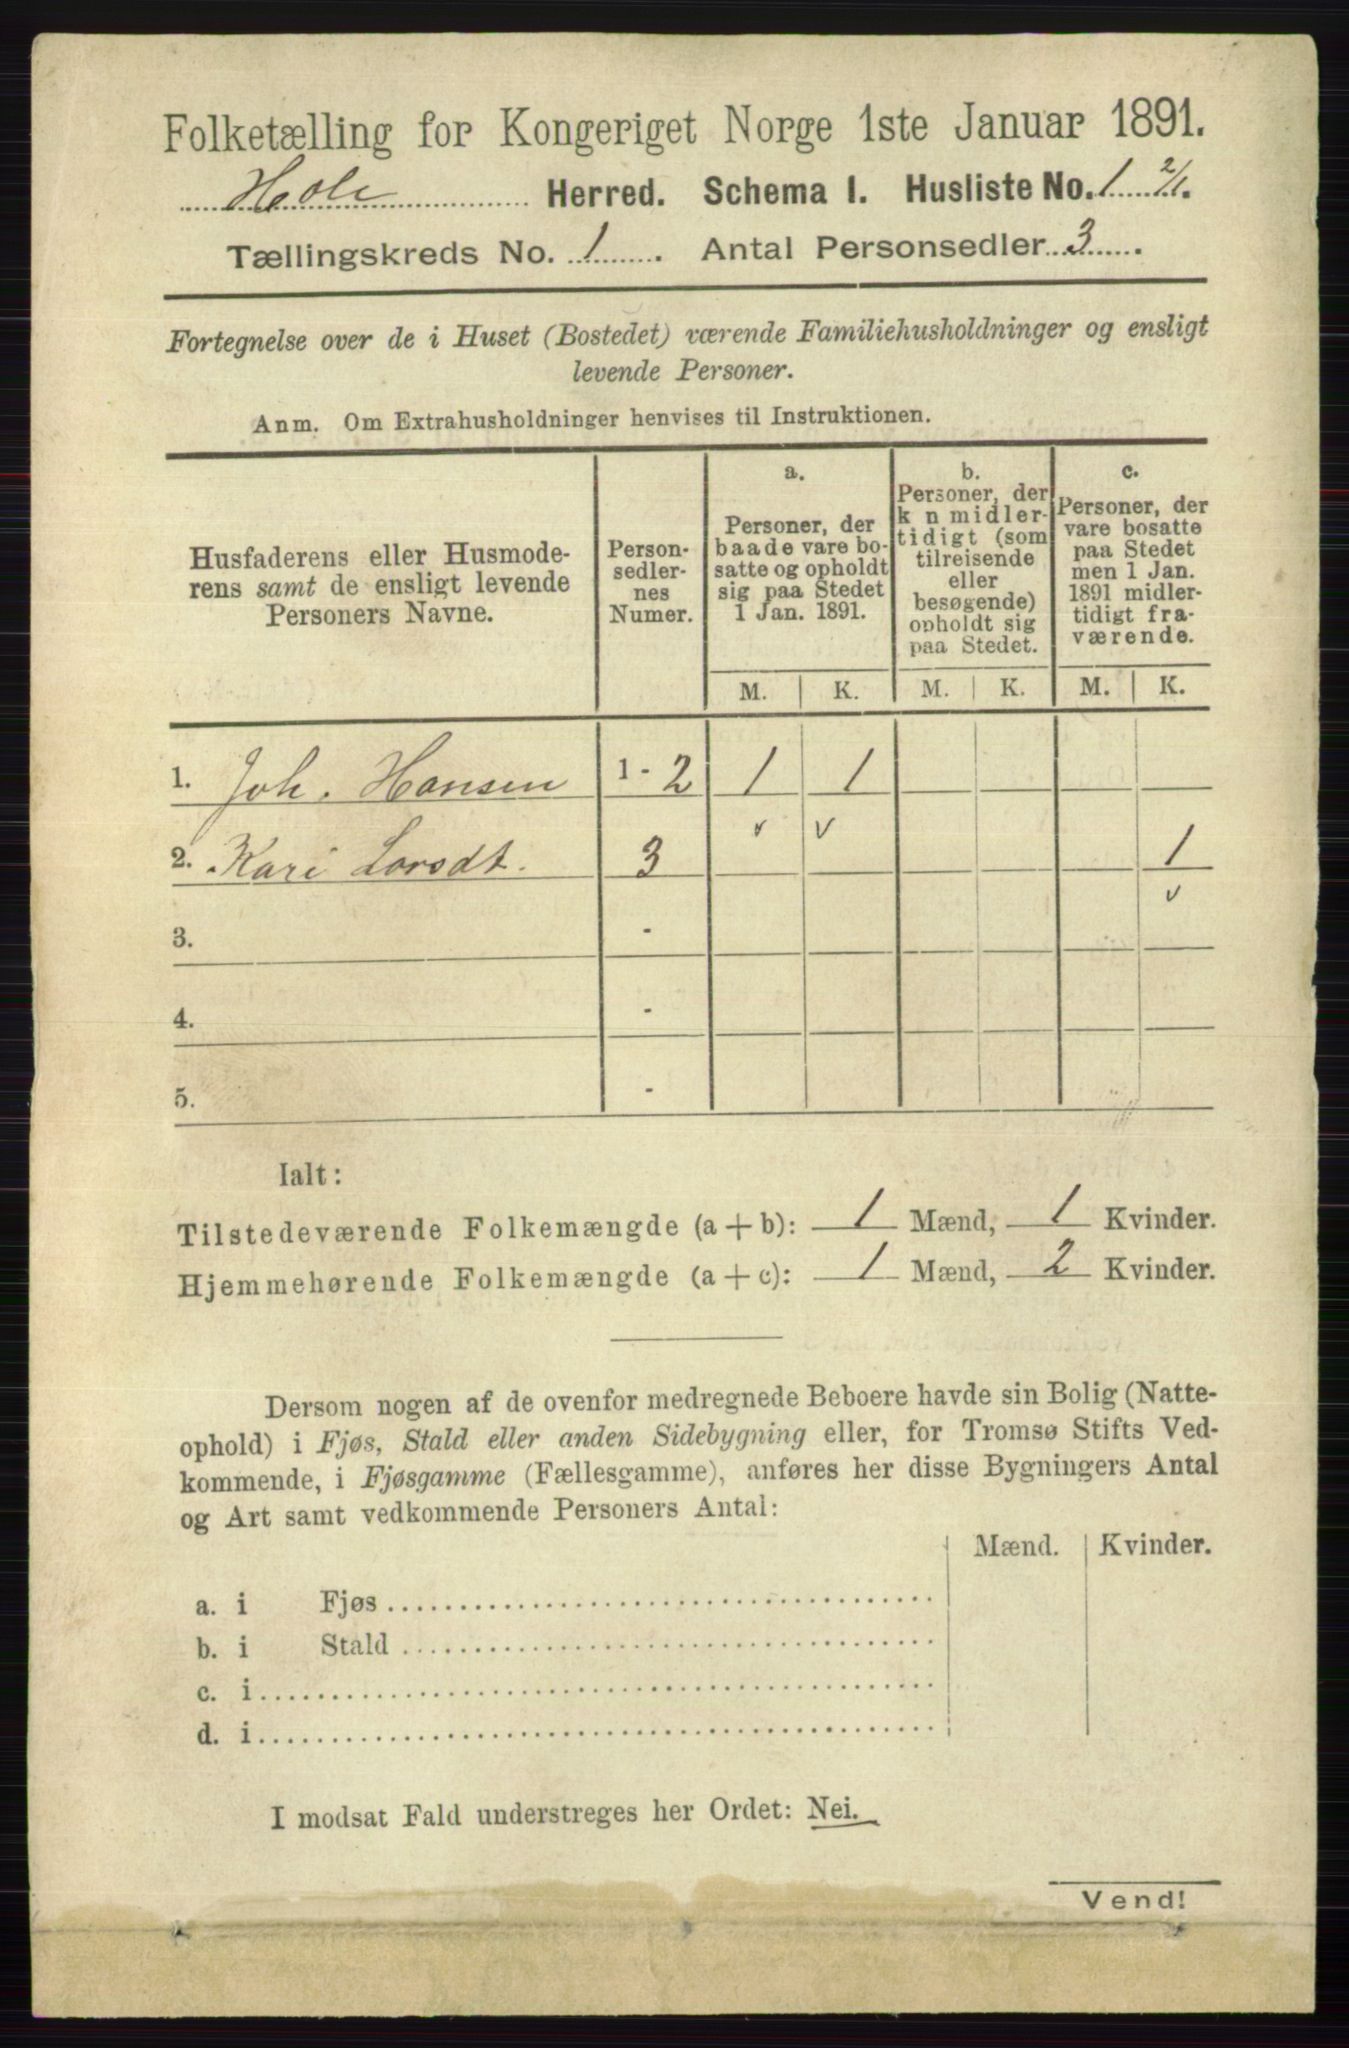 Folketælling for Kongeriget Norge 1ste Januar 1891.
Hole Herred. Schema I. Husliste No. 1 2/1.
Tællingskreds No. 1. Antal Personsedler 3.
Fortegnelse over de i Huset (Bostedet) værende Familiehusholdninger og ensligt
levende Personer.
Anm. Om Extrahusholdninger henvises til Instruktionen.
Husfaderens eller Husmode-
rens samt de ensligt levende
Personers Navne.
Person-
sedler-
nes
Numer.
a.
Personer, der
baade vare bo-
satte og opholdt
sig paa Stedet
1 Jan. 1891.
b.
Personer, der
k n midler-
tidigt (som
tilreisende
eller
besøgende)
opholdt sig
paa Stedet.
c.
Personer, der
vare bosatte
paa Stedet
men 1 Jan.
1891 midler-
tidigt fra-
værende.
M. K. M. K. M. K.
1. Joh. Hansen 1 - 2 1 1
v v
2. Kari Larsdt. 3 1
v
3. -
4. -
5. -
Ialt:
Tilstedeværende Folkemængde (a + b): 1 Mænd, 1 Kvinder.
Hjemmehørende Folkemængde (a + c): 1 Mænd, 2 Kvinder.
Dersom nogen af de ovenfor medregnede Beboere havde sin Bolig (Natte-
ophold) i Fjøs, Stald eller anden Sidebygning eller, for Tromsø Stifts Ved-
kommende, i Fjøsgamme (Fællesgamme), anføres her disse Bygningers Antal
og Art samt vedkommende Personers Antal:
Mænd. Kvinder.
a. i Fjøs
b. i Stald
c. i
d. i
I modsat Fald understreges her Ordet: Nei.
Vend!